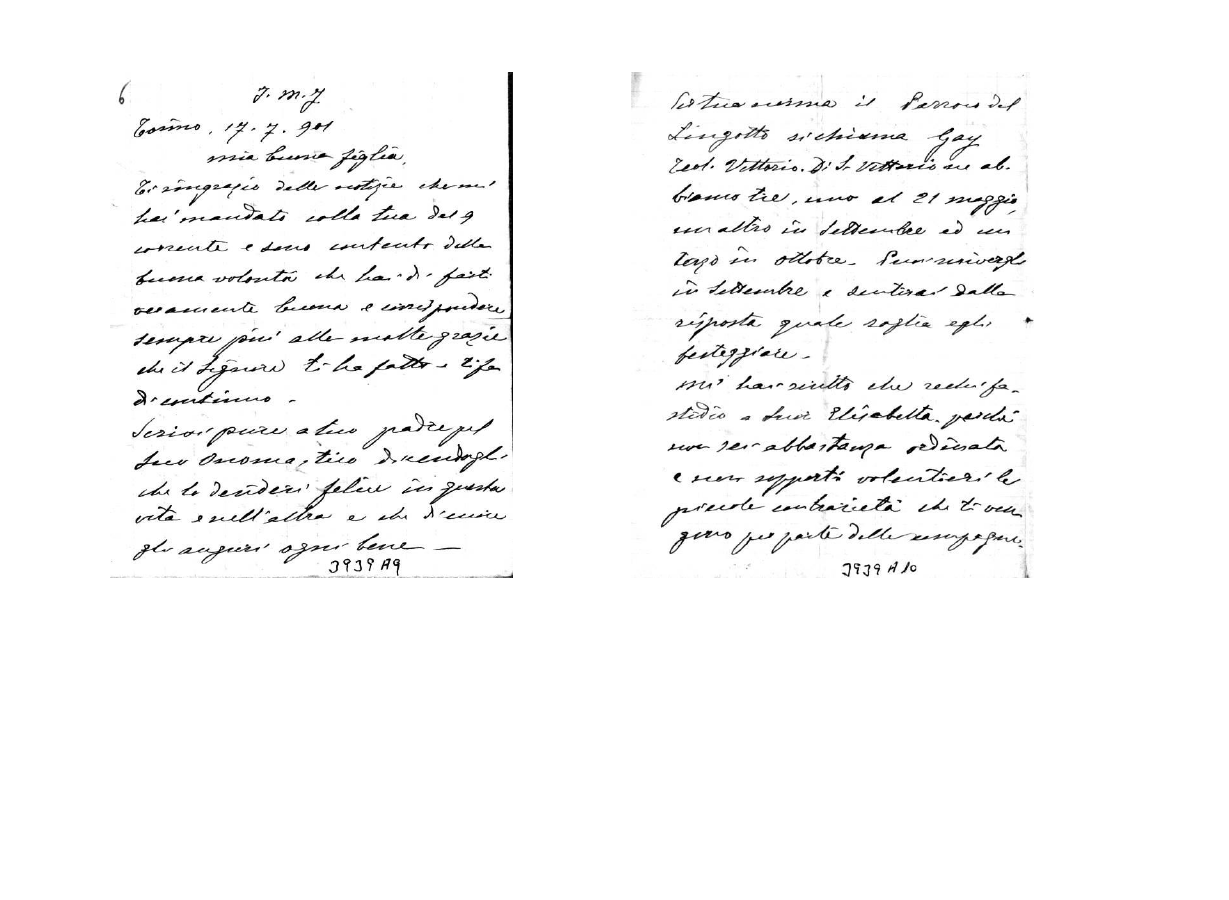 6
J. M. J
Torino, 17. 7. 901
mia buona figlia,
Ti ringrazio delle notizie che mi
hai mandato colla tua del 9
corrente e sono contento della
buona volontà che hai di farti
veramente buona e corrispondere
sempre più alle molte grazie
che il Signore ti ha fatto e ti fa
di continuo.
Scrivi pure a tuo padre pel
suo Onomastico dicendogli
che lo desideri felice in questa
vita e nell'altra e che di cuore
gli auguri ogni bene —
3939 A9
Per tua norma il Parroco del
Lingotto si chiama Gay
Teol. Vittorio. Di S. Vittorio ne ab-
biamo tre, uno al 21 maggio,
un altro in Settembre ed un
terzo in ottobre. Puoi scrivergli
in Settembre e sentirai dalla
risposta quale voglia egli
festeggiare.
Mi hai scritto che rechi fa-
stidio a Suor Elisabetta perché
non sei abbastanza ordinata
e non sopporti volentieri le
piccole contrarietà che ti ven
gono per parte delle compagne.
3939 A10